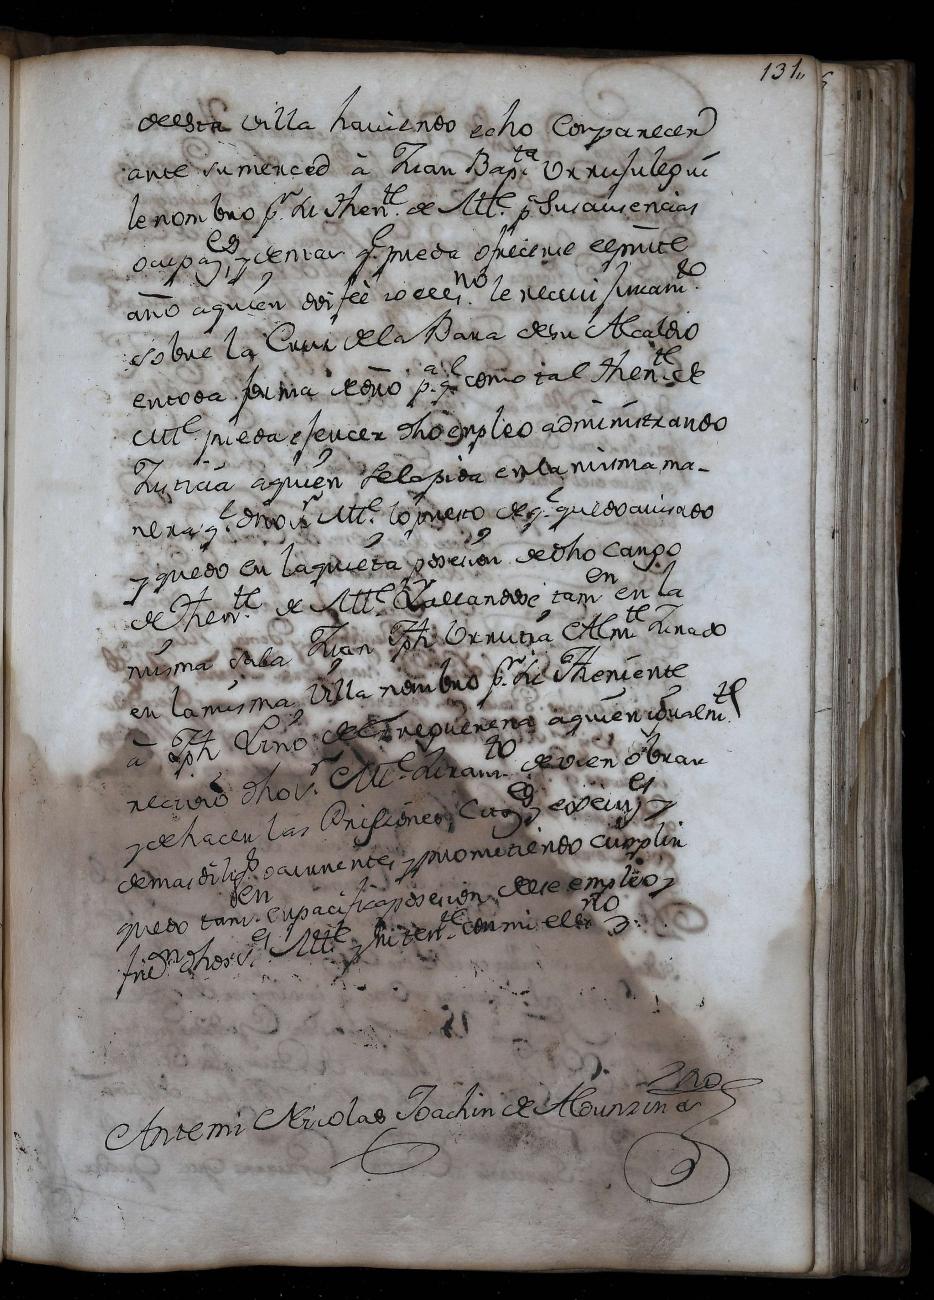 131
deesta villa haviendo echo Comparecer
ante sumerced à Juan Bap.ta Urrujulegui
le nombro p.r su Then.te de Alc.e p.r Sus ausencias
ocupaz.es, y demas q.e pueda ofrecerse el press.te
año aquien doi feè io el es.no le recivi juram.to
sobre la Cruz dela Bara desu Alcaldia
entoda forma de dro p.a q.e como tal Then.te de
Alc.e pueda ejercer dho empleo administrando
Justicia aquien selapida enla misma ma-
nera q.e dho s.r Alc.e lo puesto de q.e quedo avisado
y quedo en laquieta posesion de dho cargo
de Then.te de Alc.e y allandose tam.en en la
misma sala Juan Jph Urrutia Alm.te Jurado
en la misma villa nombro p.r su Theniente
à Jph Lino de Tregüerena aquien igualm.te
recivio dho s.r Alc.e Juram.to de vien obrar
y de hacer las Prisiones, Citaz.es execuz.es y
demas dilig.s ocurrentes y prometiendo cumplir
quedo tam.en enpacifica posesion dese empleo,
firm.on dhos s.es Alc.e y su ten.te con mi el es.no
Antemi Nicolas Joachin de Albunzin di